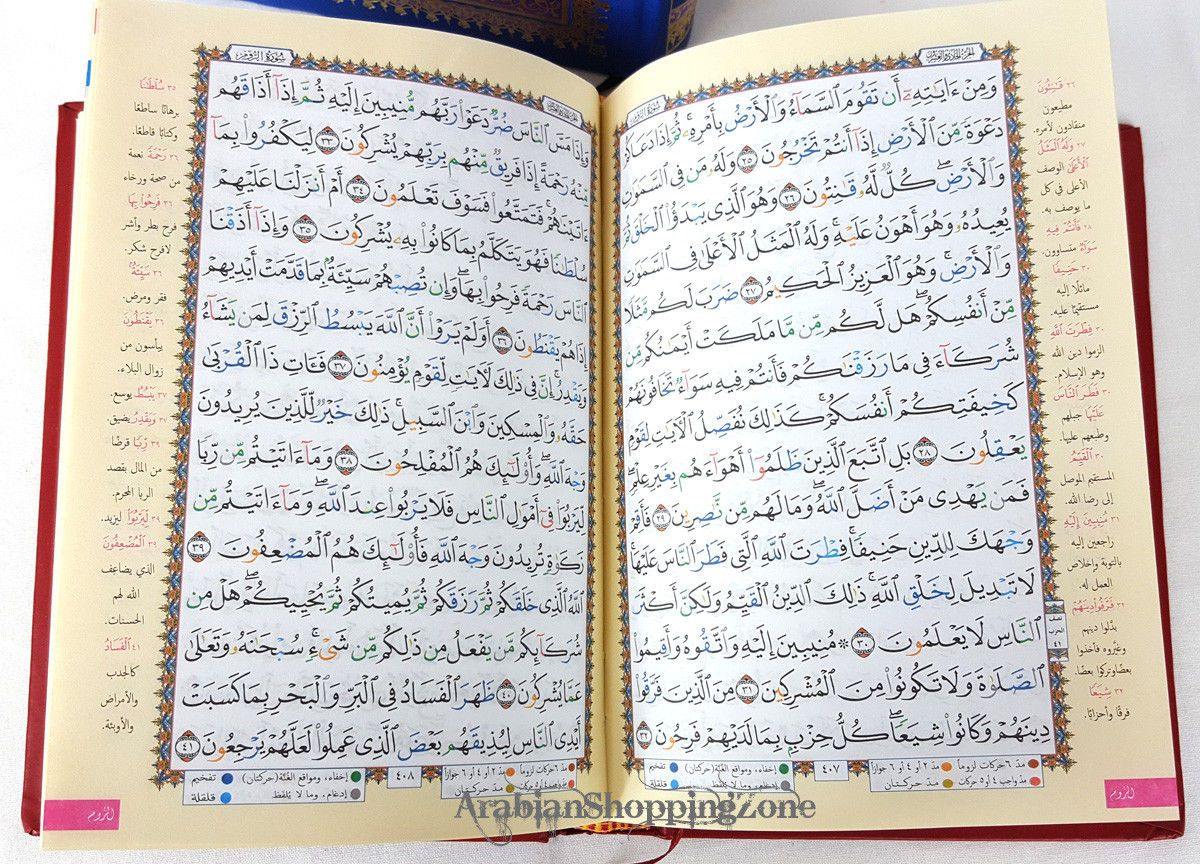 الجزء الحادي والعشرون
سورة الروم
وَمِنْ ءَايَٰتِهِۦٓ أَن تَقُومَ ٱلسَّمَآءُ وَٱلْأَرْضُ بِأَمْرِهِۦ ۚ ثُمَّ إِذَا دَعَاكُمْ
دَعْوَةً مِّنَ ٱلْأَرْضِ إِذَآ أَنتُمْ تَخْرُجُونَ ٢٥ وَلَهُۥ مَن فِى ٱلسَّمَٰوَٰتِ
وَٱلْأَرْضِ ۖ كُلٌّ لَّهُۥ قَٰنِتُونَ ٢٦ وَهُوَ ٱلَّذِى يَبْدَؤُا۟ ٱلْخَلْقَ ثُمَّ
يُعِيدُهُۥ وَهُوَ أَهْوَنُ عَلَيْهِ ۚ وَلَهُ ٱلْمَثَلُ ٱلْأَعْلَىٰ فِى ٱلسَّمَٰوَٰتِ
وَٱلْأَرْضِ ۚ وَهُوَ ٱلْعَزِيزُ ٱلْحَكِيمُ ٢٧ ضَرَبَ لَكُم مَّثَلًا
مِّنْ أَنفُسِكُمْ ۖ هَل لَّكُم مِّن مَّا مَلَكَتْ أَيْمَٰنُكُم مِّن
شُرَكَآءَ فِى مَا رَزَقْنَٰكُمْ فَأَنتُمْ فِيهِ سَوَآءٌ تَخَافُونَهُمْ
كَخِيفَتِكُمْ أَنفُسَكُمْ ۚ كَذَٰلِكَ نُفَصِّلُ ٱلْأَيَٰتِ لِقَوْمٍ
يَعْقِلُونَ ٢٨ بَلِ ٱتَّبَعَ ٱلَّذِينَ ظَلَمُوٓا۟ أَهْوَآءَهُم بِغَيْرِ عِلْمٍ ۖ
فَمَن يَهْدِى مَنْ أَضَلَّ ٱللَّهُ ۖ وَمَا لَهُم مِّن نَّٰصِرِينَ ٢٩ فَأَقِمْ
وَجْهَكَ لِلدِّينِ حَنِيفًا ۚ فِطْرَتَ ٱللَّهِ ٱلَّتِى فَطَرَ ٱلنَّاسَ عَلَيْهَا ۚ
لَا تَبْدِيلَ لِخَلْقِ ٱللَّهِ ۚ ذَٰلِكَ ٱلدِّينُ ٱلْقَيِّمُ وَلَٰكِنَّ أَكْثَرَ
ٱلنَّاسِ لَا يَعْلَمُونَ ٣٠ ۞ مُنِيبِينَ إِلَيْهِ وَٱتَّقُوهُ وَأَقِيمُوا۟
ٱلصَّلَوٰةَ وَلَا تَكُونُوا۟ مِنَ ٱلْمُشْرِكِينَ ٣١ مِنَ ٱلَّذِينَ فَرَّقُوا۟
دِينَهُمْ وَكَانُوا۟ شِيَعًا ۖ كُلُّ حِزْبٍۭ بِمَا لَدَيْهِمْ فَرِحُونَ ٣٢
٢٦ قَٰنِتُونَ
مطيعون
منقادون لأمره.
٢٧ وَلَهُ ٱلْمَثَلُ
ٱلْأَعْلَىٰ الوصف
الأعلى في كل
ما يوصف به.
٢٨ فَأَنتُمْ فِيهِ
سَوَآءٌ متساوون.
٣٠ حَنِيفًا
مائلًا إليه
مستقيمًا عليه.
٣٠ فِطْرَتَ ٱللَّهِ
الزموا دين الله
وهو الإسلام.
٣٠ فَطَرَ ٱلنَّاسَ
عَلَيْهَا جبلهم
وطبعهم عليها.
٣٠ ٱلْقَيِّمُ
المستقيم الموصل
إلى رضا الله.
٣١ مُنِيبِينَ إِلَيْهِ
راجعين إليه
بالتوبة وإخلاص
العمل له.
٣٢ فَرَّقُوا۟ دِينَهُمْ
بدّلوا دينهم
وغيروه فأخذوا
بعضًا وتركوا بعضًا.
٣٢ شِيَعًا
فرقًا وأحزابًا.
نصف
الحزب
٤١
مدّ ٦ حركات لزوماً مدّ ٢ أو ٤ أو ٦ جوازاً إخفاء، ومواقع الغُنَّة (حركتان) تفخيم
مدّ واجب ٤ أو ٥ حركات مدّ حركتان إدغام، وما لا يُلفَظ قلقلة
٤٠٧
الروم
سورة الروم
وَإِذَا مَسَّ ٱلنَّاسَ ضُرٌّ دَعَوْا۟ رَبَّهُم مُّنِيبِينَ إِلَيْهِ ثُمَّ إِذَآ أَذَاقَهُم
مِّنْهُ رَحْمَةً إِذَا فَرِيقٌ مِّنْهُم بِرَبِّهِمْ يُشْرِكُونَ ٣٣ لِيَكْفُرُوا۟ بِمَآ
ءَاتَيْنَٰهُمْ ۚ فَتَمَتَّعُوا۟ فَسَوْفَ تَعْلَمُونَ ٣٤ أَمْ أَنزَلْنَا عَلَيْهِمْ
سُلْطَٰنًا فَهُوَ يَتَكَلَّمُ بِمَا كَانُوا۟ بِهِۦ يُشْرِكُونَ ٣٥ وَإِذَآ أَذَقْنَا
ٱلنَّاسَ رَحْمَةً فَرِحُوا۟ بِهَا ۖ وَإِن تُصِبْهُمْ سَيِّئَةٌۢ بِمَا قَدَّمَتْ أَيْدِيهِمْ
إِذَا هُمْ يَقْنَطُونَ ٣٦ أَوَلَمْ يَرَوْا۟ أَنَّ ٱللَّهَ يَبْسُطُ ٱلرِّزْقَ لِمَن يَشَآءُ
وَيَقْدِرُ ۚ إِنَّ فِى ذَٰلِكَ لَأَيَٰتٍ لِّقَوْمٍ يُؤْمِنُونَ ٣٧ فَـَٔاتِ ذَا ٱلْقُرْبَىٰ
حَقَّهُۥ وَٱلْمِسْكِينَ وَٱبْنَ ٱلسَّبِيلِ ۚ ذَٰلِكَ خَيْرٌ لِّلَّذِينَ يُرِيدُونَ
وَجْهَ ٱللَّهِ ۖ وَأُو۟لَٰٓئِكَ هُمُ ٱلْمُفْلِحُونَ ٣٨ وَمَآ ءَاتَيْتُم مِّن رِّبًا
لِّيَرْبُوَا۟ فِىٓ أَمْوَٰلِ ٱلنَّاسِ فَلَا يَرْبُوا۟ عِندَ ٱللَّهِ ۖ وَمَآ ءَاتَيْتُم مِّن
زَكَوٰةٍ تُرِيدُونَ وَجْهَ ٱللَّهِ فَأُو۟لَٰٓئِكَ هُمُ ٱلْمُضْعِفُونَ ٣٩
ٱللَّهُ ٱلَّذِى خَلَقَكُمْ ثُمَّ رَزَقَكُمْ ثُمَّ يُمِيتُكُمْ ثُمَّ يُحْيِيكُمْ ۖ هَلْ مِن
شُرَكَآئِكُم مَّن يَفْعَلُ مِن ذَٰلِكُم مِّن شَىْءٍ ۚ سُبْحَٰنَهُۥ وَتَعَٰلَىٰ
عَمَّا يُشْرِكُونَ ٤٠ ظَهَرَ ٱلْفَسَادُ فِى ٱلْبَرِّ وَٱلْبَحْرِ بِمَا كَسَبَتْ
أَيْدِى ٱلنَّاسِ لِيُذِيقَهُم بَعْضَ ٱلَّذِى عَمِلُوا۟ لَعَلَّهُمْ يَرْجِعُونَ ٤١
٣٥ سُلْطَٰنًا
برهانًا ساطعًا
وكتابًا قاطعًا.
٣٦ رَحْمَةً نعمة
من صحة ورخاء
٣٦ فَرِحُوا۟ بِهَا
فرح بطر وأشر
لا فرح شكر.
٣٦ سَيِّئَةٌ
فقر ومرض.
٣٦ يَقْنَطُونَ
ييأسون من
زوال البلاء.
٣٧ يَبْسُطُ يوسع.
٣٧ وَيَقْدِرُ يضيق.
٣٩ رِّبًا قرضًا
من المال بقصد
الربا المحرم.
٣٩ لِّيَرْبُوَا۟ ليزيد.
٣٩ ٱلْمُضْعِفُونَ
الذي يضاعف
الله لهم
الحسنات.
٤١ ٱلْفَسَادُ
كالجدب
والأمراض
والأوبئة.
مدّ ٦ حركات لزوماً مدّ ٢ أو ٤ أو ٦ جوازاً إخفاء، ومواقع الغُنَّة (حركتان) تفخيم
مدّ حركتان إدغام، وما لا يُلفَظ قلقلة
٤٠٨
الروم
ArabianShoppingZone